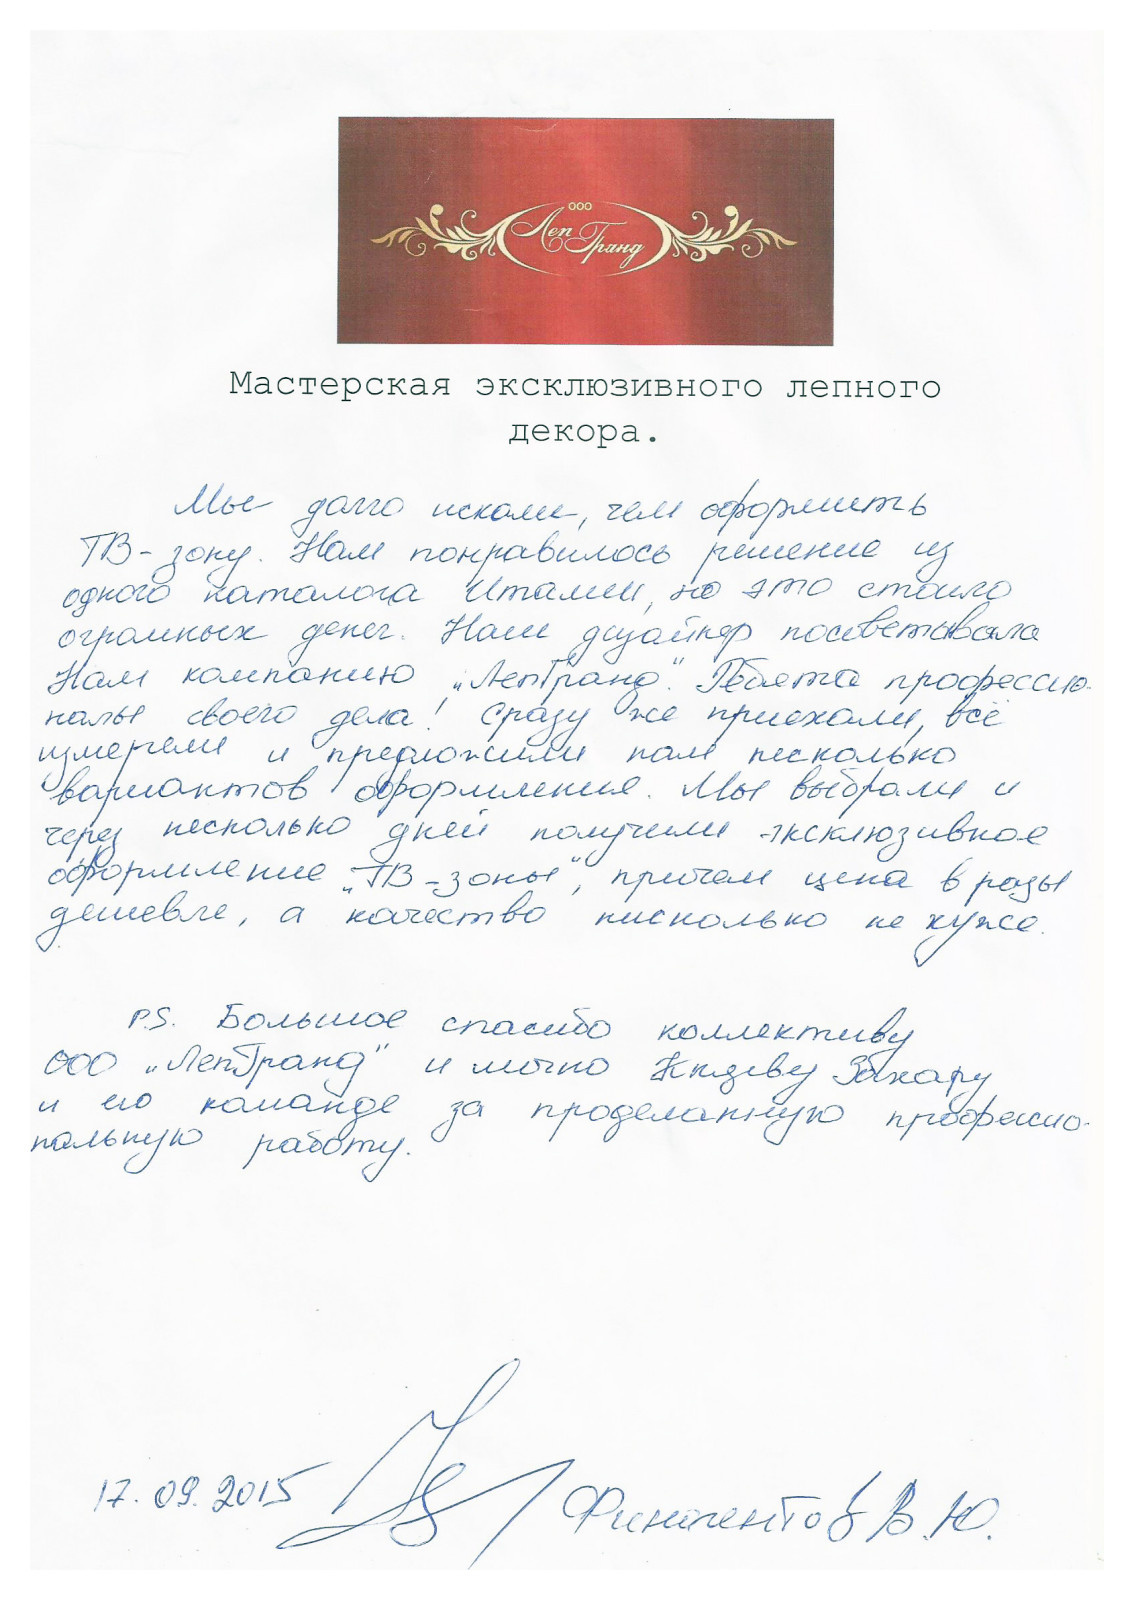 ООО
Леп Гранд
Мастерская эксклюзивного лепного
декора.
Мы долго искали, чем оформить
ТВ-зону. Нам понравилось решение из
одного каталога Италии, но это стоило
огромных денег. Наш дизайнер посоветовала
Нам компанию „ЛепГранд". Ребята профессио-
налы своего дела! Сразу же приехали, всё
измерели и предложили нам несколько
вариантов оформления. Мы выбрали и
через несколько дней получили эксклюзивное
оформление „ТВ-зоны", причем цена в разы
дешевле, а качество нисколько не хуже.
P.S. Большое спасибо коллективу
ООО „ЛепГранд" и лично Захару
и его команде за проделанную профессио-
нальную работу.
17.09.2015 В.Ю.